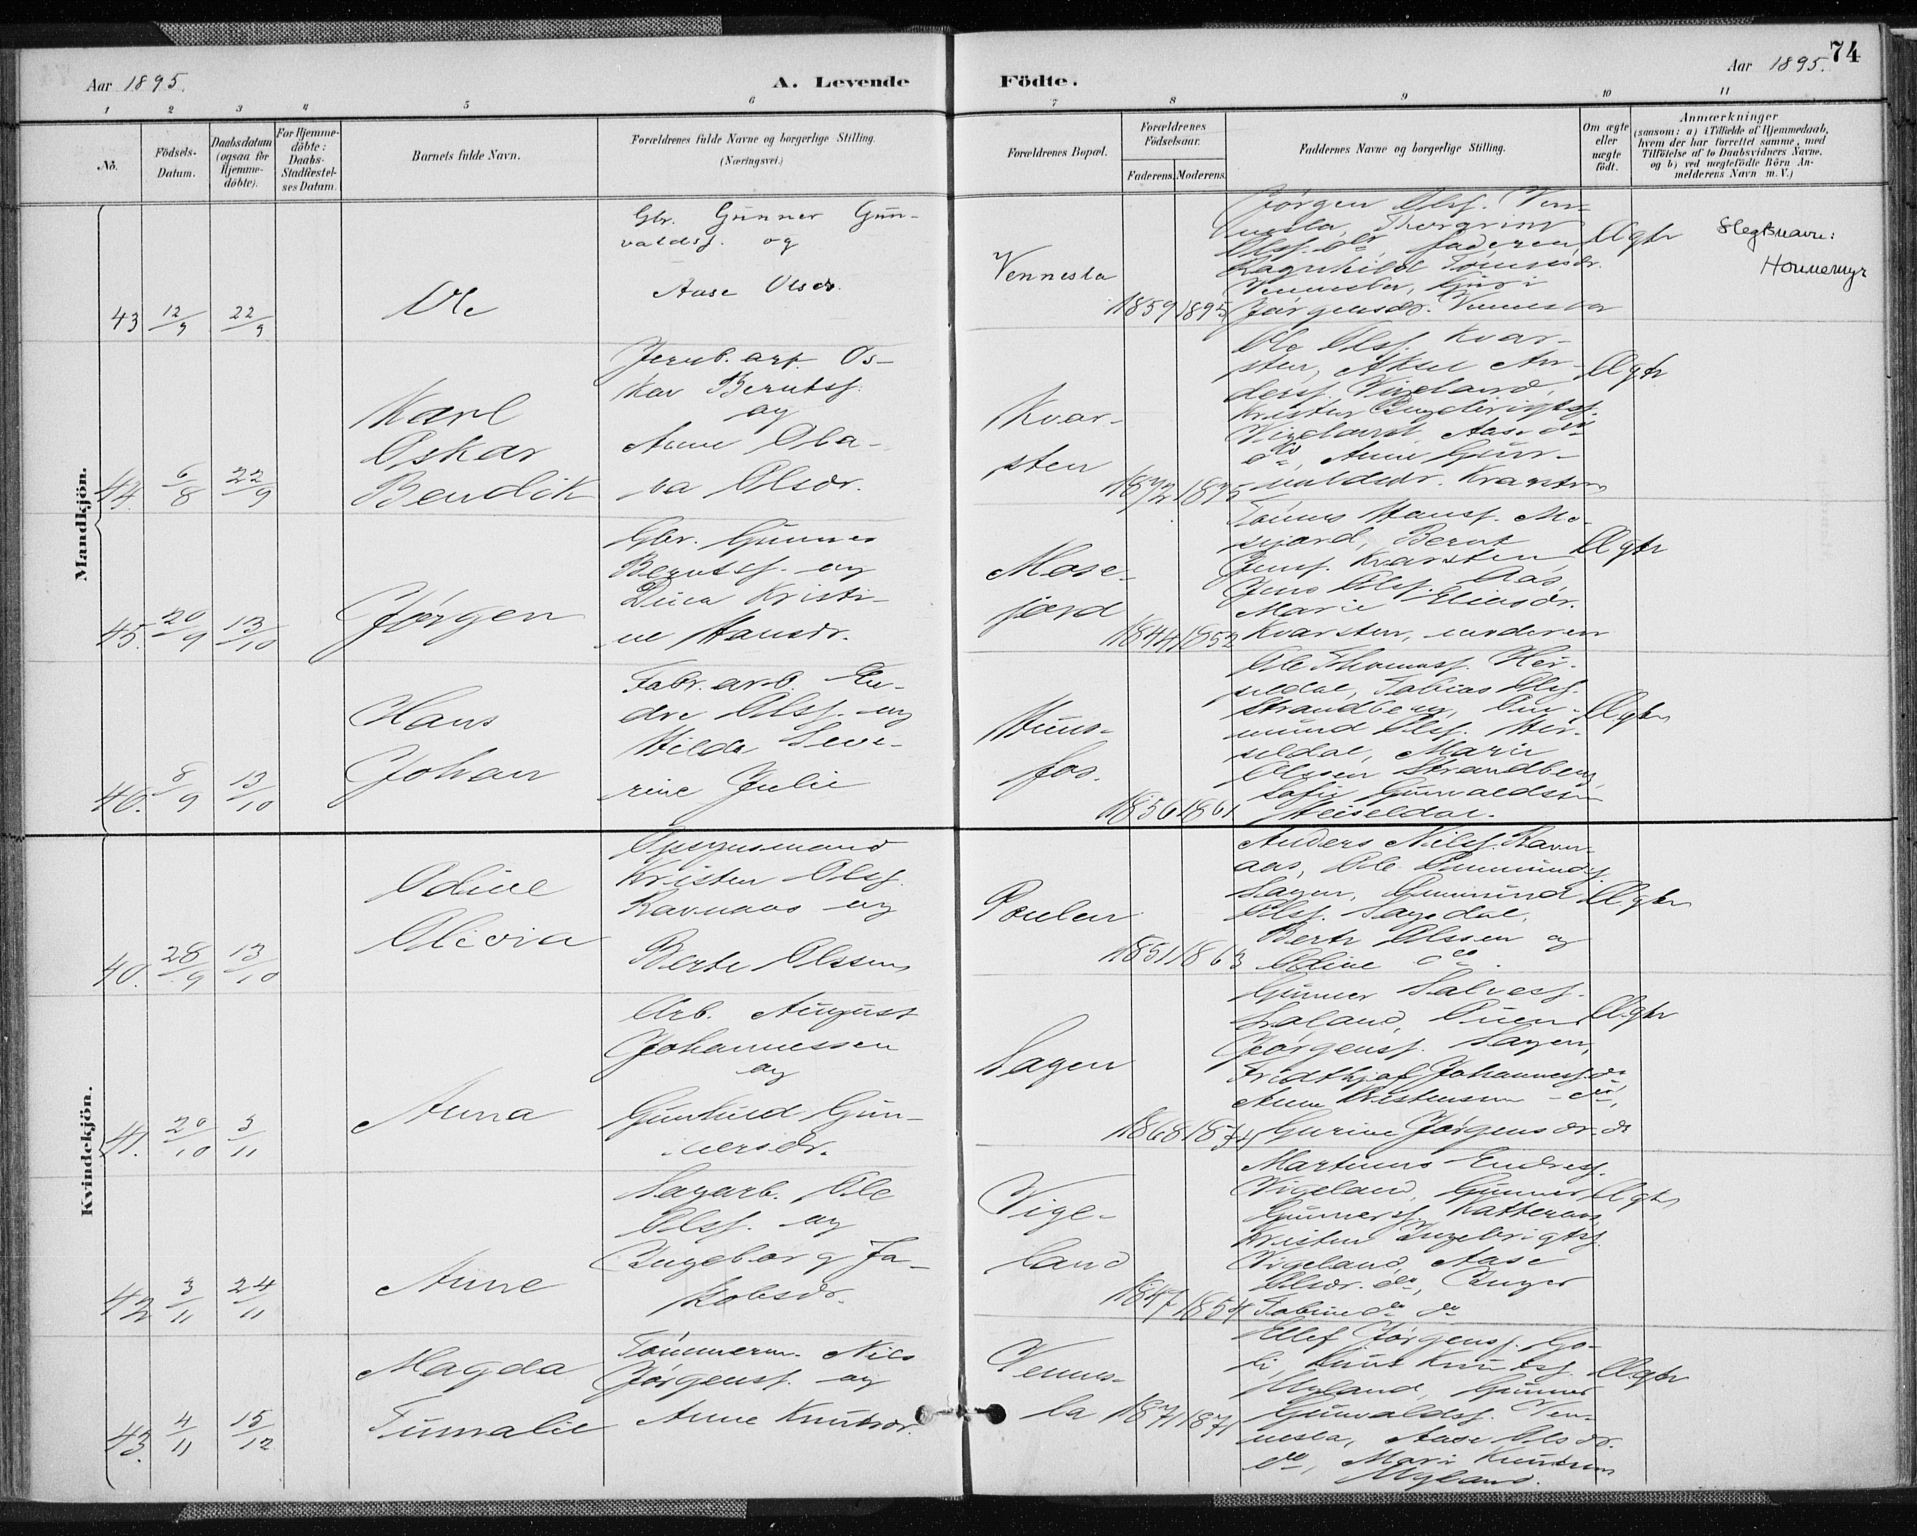 74
Aar 1895.
A. Levende
Födte.
Aar 1895.
1 2 3 4 5 6 7 8 9 10 11
No.
Födsels-
Datum.
Daabsdatum
(ogsaa for
Hjemme-
döbte).
For Hjemme-
döbte:
Daabs-
Stadfæstel-
ses Datum.
Barnets fulde Navn.
Forældrenes fulde Navne og borgerlige Stilling.
(Næringsvei.)
Forældrenes Bopæl.
Forældrenes
Födselsaar.
Faderens. Moderens.
Faddernes Navne og borgerlige Stilling.
Om ægte
eller
uægte
födt.
Anmærkninger
(saasom: a) i Tilfælde af Hjemmedaab,
hvem der har forrettet samme, med
Tilföielse af to Daabsvidners Navne,
og b) ved uægtefödte Börn An-
melderens Navn m. V.)
Mandkjön.
43 12/9 22/9
Ole
Gbr. Gunner Gun-
valdsf. og
Aase Olsdr.
Vennesla
1859 1895
Jørgen Olsf. Ven-
nesla, Thorgrim
Olsf. do, faderen,
Ragnhild Tønnesdr.
Vennesla, Guri
Jørgensdr. Vennesla
Ægte
Slegtsnavn:
Honnemyr
44. 6/8 22/9
Karl
Oskar
Bendik
Jernb. arb. Os-
kar Berntsf.
og
Anne Ola-
va Olsdr.
Kvar-
sten
1872 1875
Ole Olsf. Kvar-
sten, Aksel An-
dersf. Vigeland,
Kristen Ingebrigtsf.
Vigeland, Aase do
do, Anne Gun-
uldsdr. Kvarsten
Ægte
45. 20/9 13/10
Jørgen
Gbr. Gunner
Berntsf. og
Dina Kristi-
ne Hansdr.
Mose-
jord
1844 1852
Tønnes Hansf. Mo-
sejord, Bernt
Jensf. Kvarsten,
Jens Olsf. Aas,
Marie Eliasdr.
Kvarsten, moderen
Ægte
46. 8/9 13/10
Hans
Johan
Fabr. arb. En-
dre Olsf. og
Hilda Seve-
rine Julie
Huns-
fos.
1856 1861
Ole Thomasf.
Tobias Olsf.
Strandberg,
mund Olsf.
Marie
Olssen Strandberg,
Sofie Gunvaldsen
Heiseldal.
Ægte
Kvindekjön.
40. 28/9 13/10
Odine
Olivia
Opsynsmand
Kristen Olsf.
Ravnaas og
Berte Olssen
Poulen
1851 1863
Anders Nilsf. Ravn-
aas, Ole Gunmundsf.
Sagen, Gunmund
Olsf. Sagedal,
Berte Olssen og
Odine do.
Ægte
41. 20/10 3/11
Anna
Arb. August
Johannessen
og
Gunhild Gun-
nersdr.
Sagen
1868 1874
Gunner Salvesf.
Laland, Ouen
Jørgensf. Sagen,
Fridthjof Johannesf. do
Anne Kristensen do,
Gurine Jørgensdr. do
Ægte
42 3/11 24/11
Anne
Sagarb. Ole
Olsf. og
Ingeborg Ja-
kobsdr.
Vige-
land
1847 1854
Martinus Endresf.
Vigeland, Gunner
Gunnersf. Katteraas,
Kristen Ingebrigtsf.
Vigeland, Aase
Olsdr. do, Inger
Tobine do do
Ægte
43. 4/11 15/12
Magda
Tumalie
Tømmerm. Nils
Jørgensf. og
Anne Knutsdr.
Vennes-
la
1871 1871
Ellef Jørgensf. Go-
li, Knut Knutsf.
Myland, Gunner
Gunvaldsf. Ven-
nesla, Aase Olsdr.
do, Mari Knutsen
Myland.
Ægte